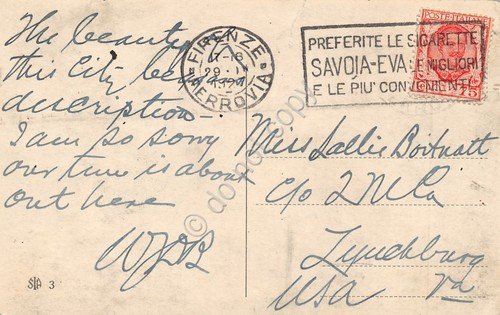 The beauty of
this City beggars
description —
I am so sorry
our time is about
out here
WJB
STA 3
FIRENZE
17-18
29·
FERROVIA
PREFERITE LE SIGARETTE
SAVOJA-EVA LE MIGLIORI
E LE PIU' CONVENIENTI
POSTE ITALIANE
Miss Sallie
c/o
Lynchburg
USA Va
© do not copy